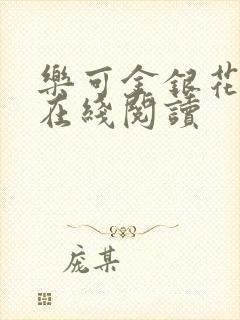 樂可金銀花
在綫閱讀
庞某